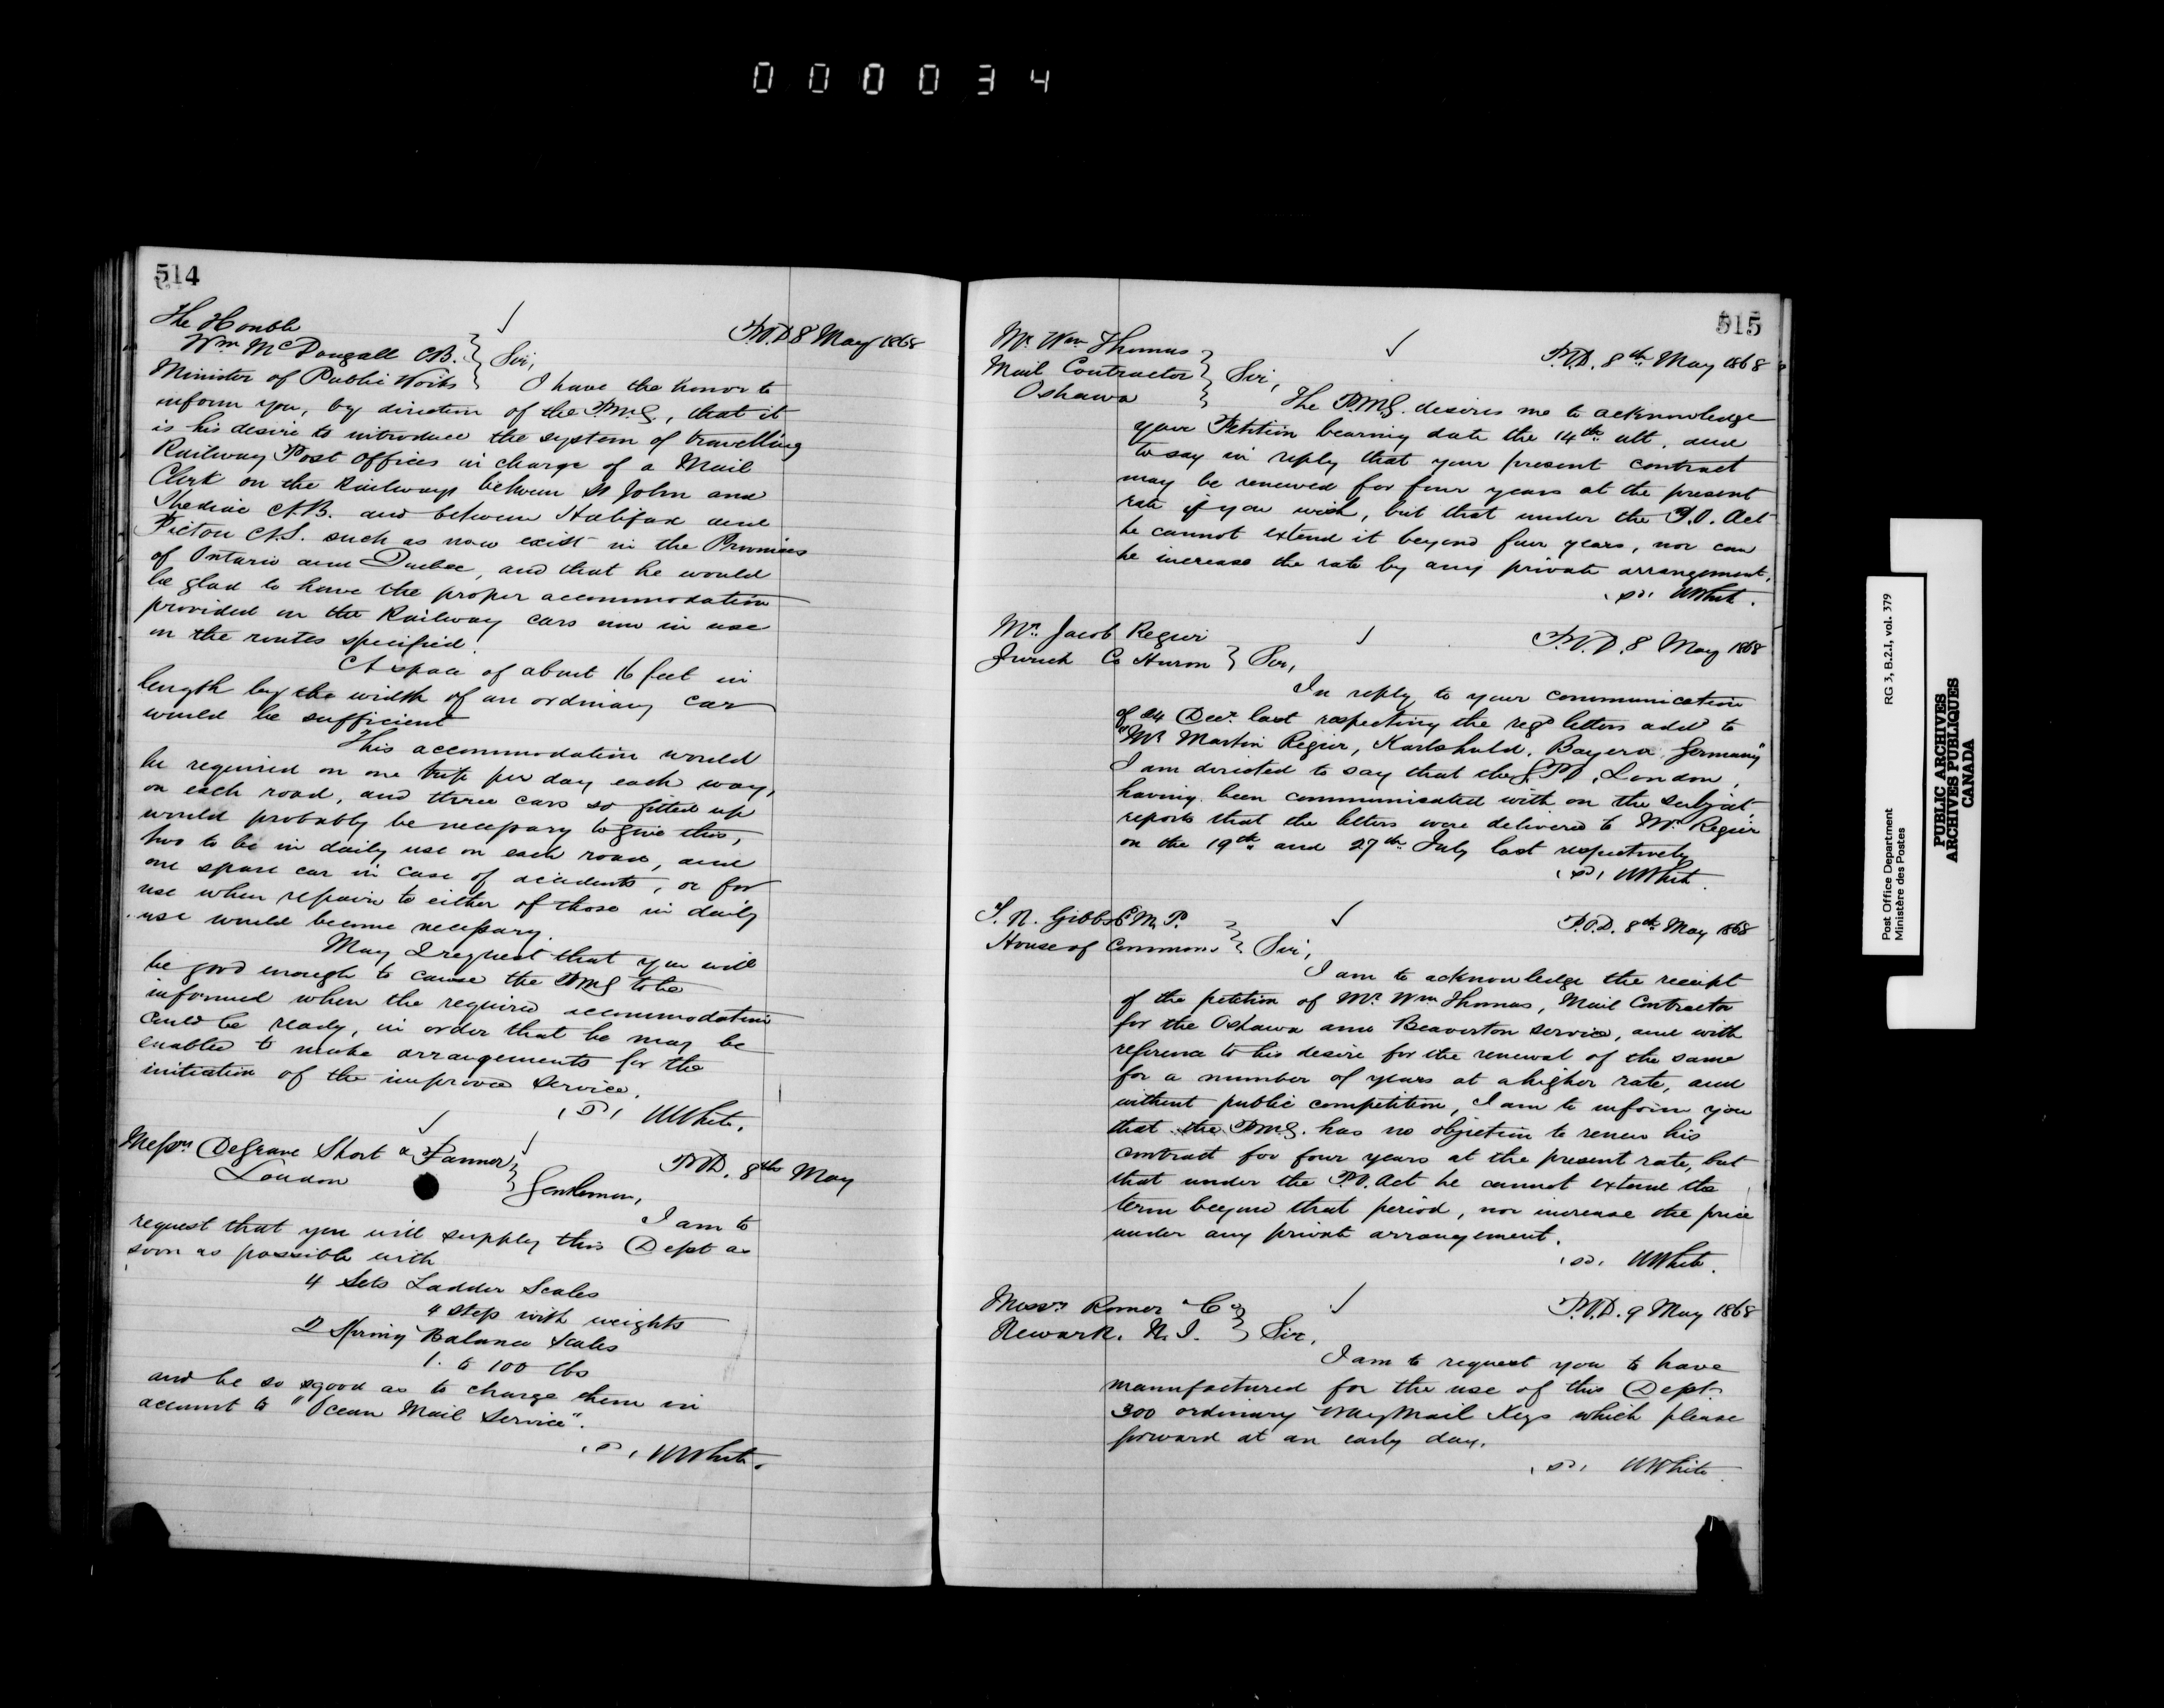 000034
514
The Honble
Wm McDougall CB.
Minister of Public Works
Sir,
P.O.D 8 May 1868
I have the honor to
inform you, by direction of the P.M.G, that it
is his desire to introduce the system of travelling
Railway Post Offices in charge of a Mail
Clerk on the Railways between St John and
Shediac N.B. and between Halifax and
Pictou N.S. such as now exist in the Provinces
of Ontario and Quebec, and that he would
be glad to have the proper accommodation
provided in the Railway cars now in use
on the routes specified.
A space of about 16 feet in
length by the width of an ordinary car
would be sufficient
This accommodation would
be required on one trip per day each way,
on each road, and three cars so fitted up
would probably be necessary to give this,
two to be in daily use on each road, and
one spare car in case of accidents, or for
use when repairs to either of those in daily
use would become necessary.
May I request that you will
be good enough to cause the PMG to be
informed when the required accommodation
could be ready, in order that he may be
enabled to make arrangements for the
initiation of the improved service.
WWhite.
Messrs DeGrave Short & Fanner
London
Gentlemen,
P.O.D. 8th May
I am to
request that you will supply this Dept as
soon as possible with
4 Sets Ladder Scales
4 step with weights
2 Spring Balance Scales
1. to 100 lbs
and be so good as to charge them in
account to "Ocean Mail Service".
WWhite.
515
Mr. Wm Thomas
Mail Contractor
Oshawa
Sir,
P.O.D. 8th May 1868
The P.M.G. desires me to acknowledge
your Petition bearing date the 14th ult, and
to say in reply that your present contract
may be renewed for four years at the present
rate if you wish, but that under the P.O. Act
he cannot extend it beyond four years, nor can
he increase the rate by any private arrangement.
WWhite.
Mr. Jacob Regier
Zurich Co Huron
Sir,
P.O.D. 8 May 1868
In reply to your communication
of 24 Decr. last respecting the regd letters addd to
"Mr Martin Regier, Karlshuld, Bayern, Germany"
I am directed to say that the G.P.O, London,
having been communicated with on the subject
reports that the letters were delivered to Mr. Regier
on the 19th and 27th July last respectively
WWhite.
T. N. Gibbs E M. P.
House of Commons
Sir,
P.O.D. 8th May 1868
I am to acknowledge the receipt
of the petition of Mr Wm Thomas, Mail Contractor
for the Oshawa and Beaverton service, and with
reference to his desire for the renewal of the same
for a number of years at a higher rate, and
without public competition, I am to inform you
that the P.M.G. has no objection to renew his
contract for four years at the present rate, but
that under the P.O. Act he cannot extend the
term beyond that period, nor increase the price
under any private arrangement.
WWhite.
Messrs Romer & Co
Newark. N. J.
Sir,
P.O.D. 9 May 1868
I am to request you to have
manufactured for the use of this Dept.
300 ordinary Way Mail Keys which please
forward at an early day.
WWhite
Post Office Department RG 3, B.2.I, vol. 379
Ministère des Postes
PUBLIC ARCHIVES
ARCHIVES PUBLIQUES
CANADA